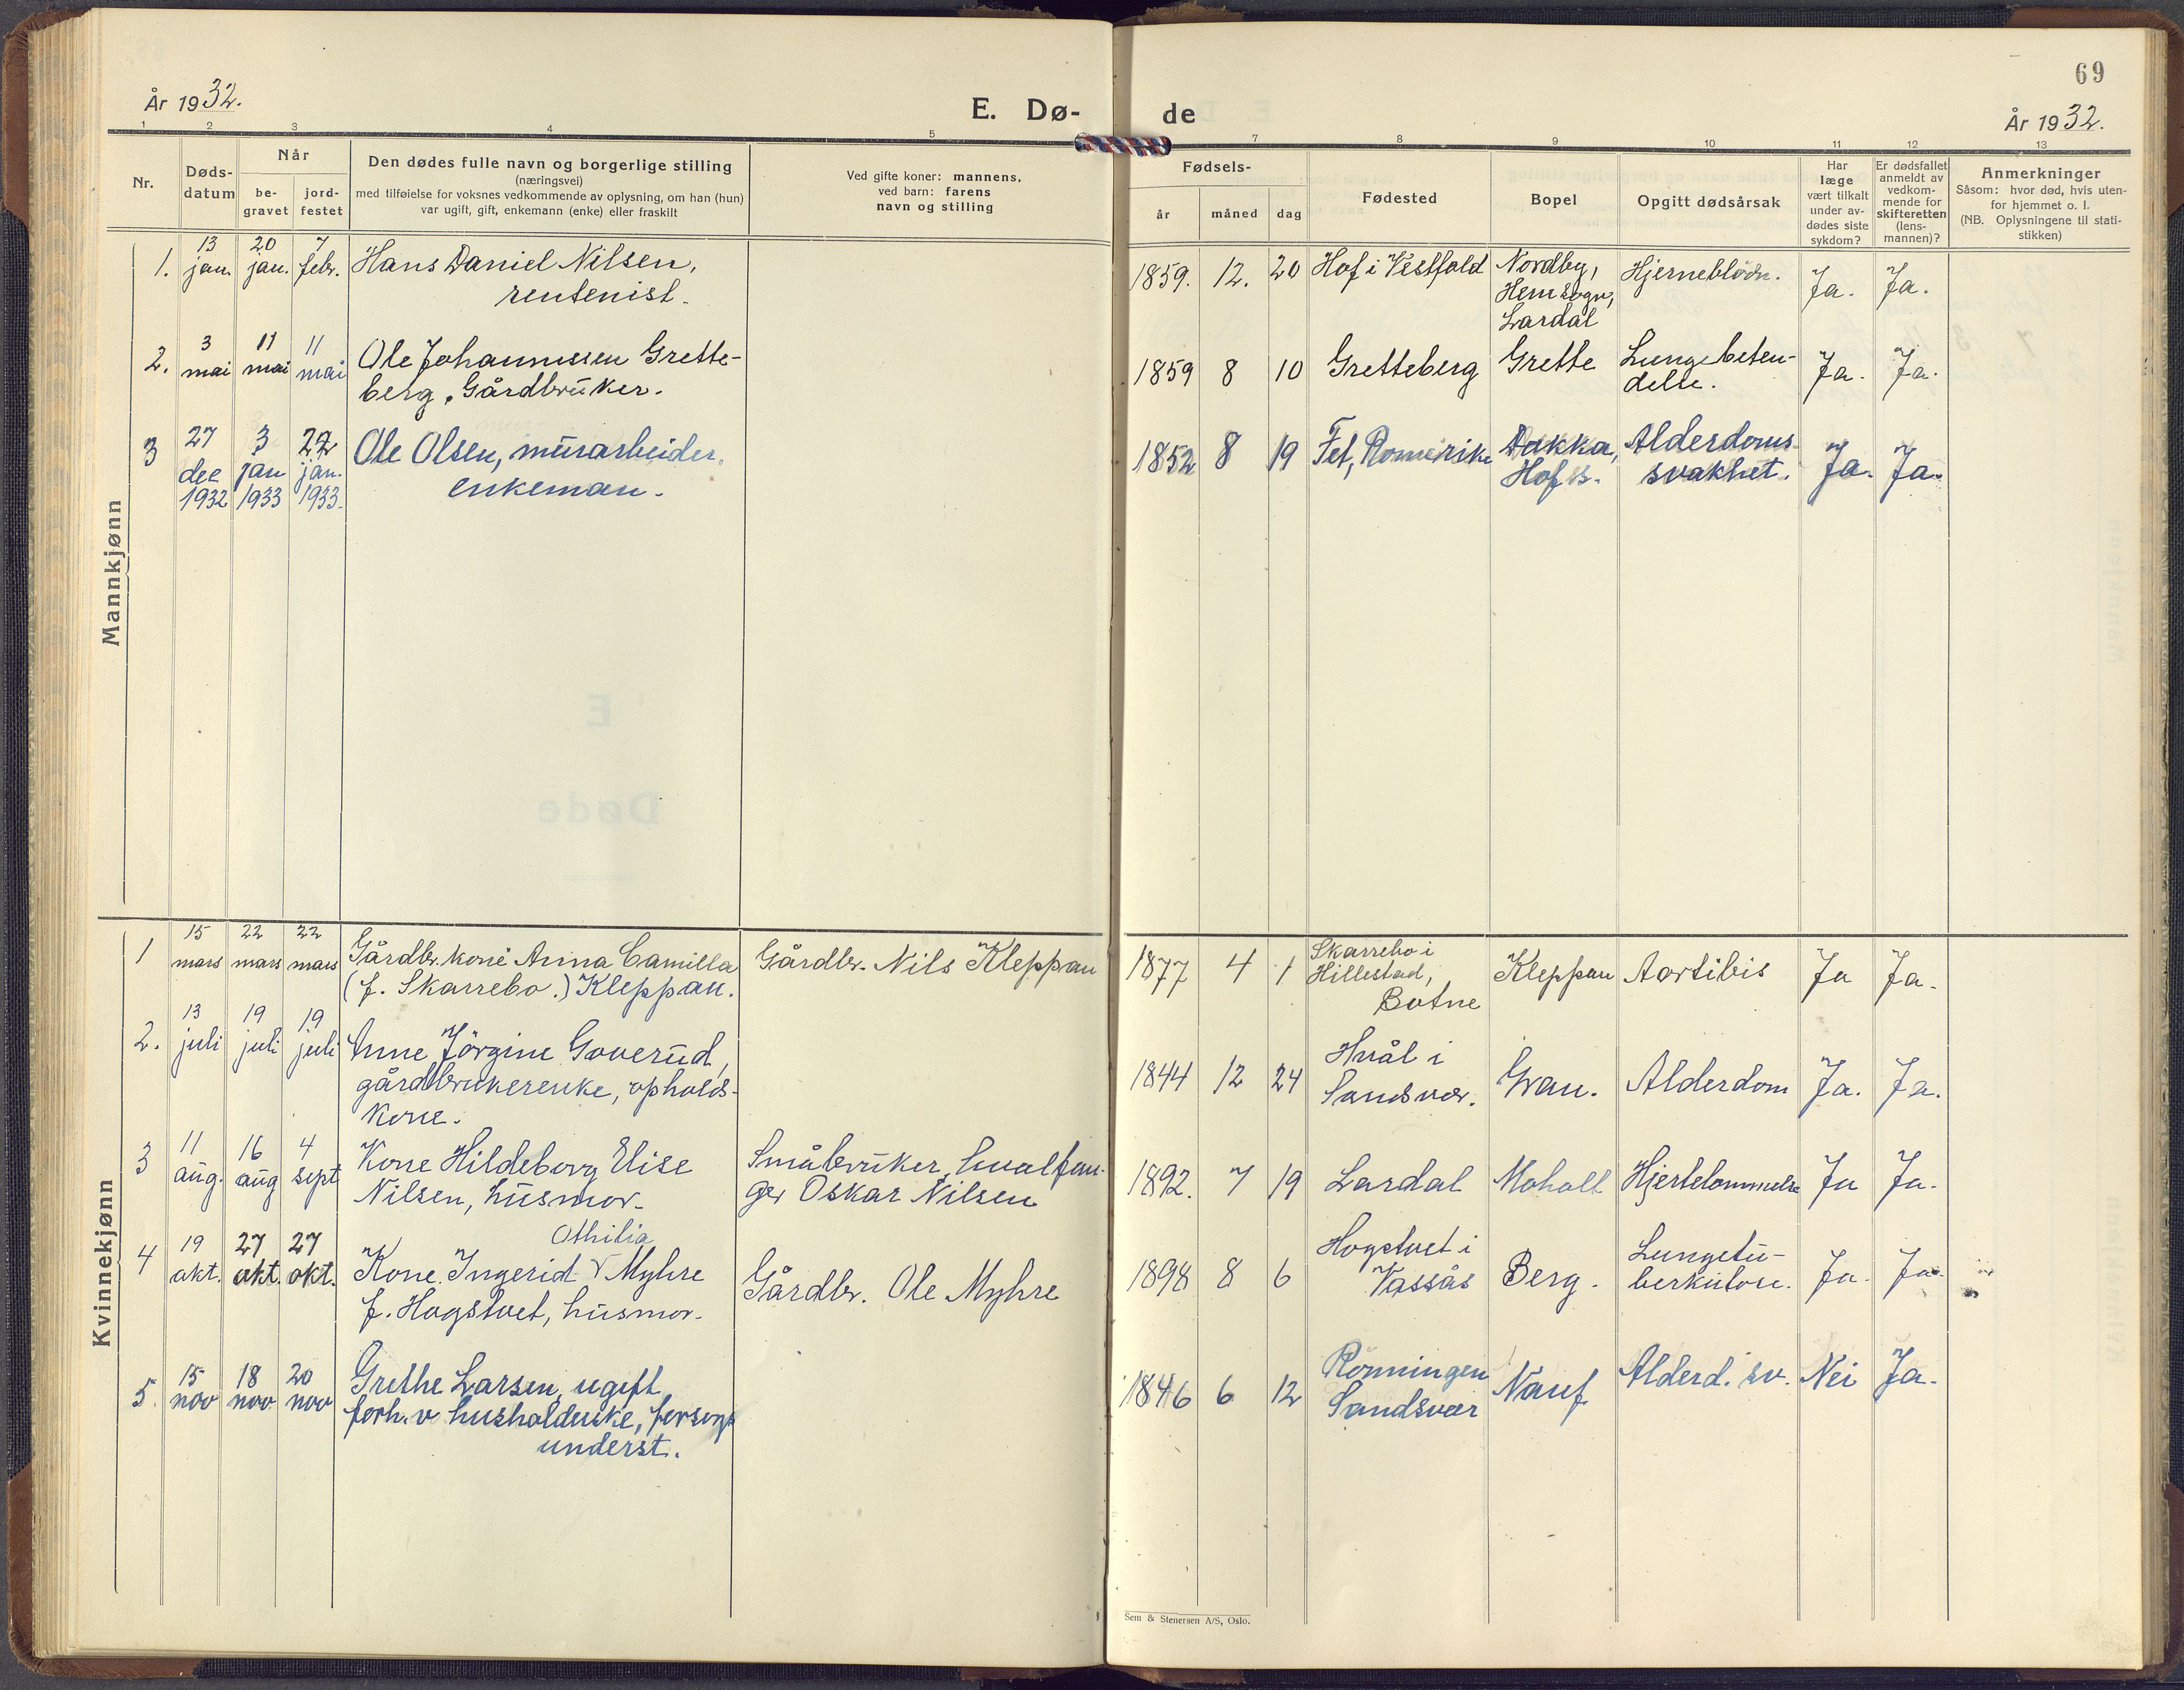 69
År 1932.
E. Dø-
de
År 1932.
1 2 3 4 5 7 8 9 10 11 12 13
Nr.
Døds-
datum
Når
be-
gravet
jord-
festet
Den dødes fulle navn og borgerlige stilling
(næringsvei)
med tilføielse for voksnes vedkommende av oplysning, om han (hun)
var ugift, gift, enkemann (enke) eller fraskilt
Ved gifte koner: mannens,
ved barn: farens
navn og stilling
Fødsels-
år
måned
dag
Fødested
Bopel
Opgitt dødsårsak
Har
læge
vært tilkalt
under av-
dødes siste
sykdom?
Er dødsfallet
anmeldt av
vedkom-
mende for
skifteretten
(lens-
mannen)?
Anmerkninger
Såsom: hvor død, hvis uten-
for hjemmet o. l.
(NB. Oplysningene til stati-
stikken)
Mannkjønn
1.
13
jan.
20
jan.
7
febr.
Hans Daniel Nilsen,
rentenist.
1859. 12. 20
Hof i Vestfold
Nordby,
Hem sogn,
Lardal
Hjerneblödn.
Ja.
Ja.
2.
3
mai
11
mai
11
mai
Ole Johannessen Grette-
berg, Gårdbruker.
1859 8 10
Gretteberg
Grette
Lungebeten-
delse.
Ja.
Ja.
3
27
dec
1932
3
jan
1933
22
jan.
1933.
Ole Olsen, murarbeider,
enkeman.
1852 8 19
Fet, Romerike
Dakka,
Hof s.
Alderdoms-
svakhet.
Ja.
Ja.
Kvinnekjønn
1
15
mars
22
mars
22
mars
Gårdbr. kone Anna Camilla
(f. Skarrebo.) Kleppan.
Gårdbr. Nils Kleppan
1877 4 1
Skarrebo i
Hillestad,
Botne
Kleppan
Aortibis
Ja
Ja.
2.
13
juli
19
juli
19
juli
Anne Jörgine Goverud,
gårdbrukerenke, opholds-
kone.
1844 12 24
Hvål i
Sandsvær.
Gran.
Alderdom
Ja.
Ja.
3
11
aug.
16
aug
4
sept
Kone Hildeborg Elise
Nilsen, husmor.
Småbruker, hvalfan-
ger Oskar Nilsen
1892. 7 19
Lardal
Moholt
Hjertelammelse
Ja
Ja.
4
19
okt.
27
okt.
27
okt.
Othilia
Kone Ingerid V Myhre
f. Hogstvet, husmor.
Gårdbr. Ole Myhre
1898 8 6
Hogstvet i
Vassås
Berg.
Lungetu-
berkulose.
Ja.
Ja.
5.
15
nov
18
nov
20
nov
Grethe Larsen, ugift,
forh. v husholderske, forsorgs
underst.
1846 6 12
Rönningen
Sandsvær
Nauf
Alderd. sv.
Nei
Ja.
Sem & Stenersen A/S, Oslo.